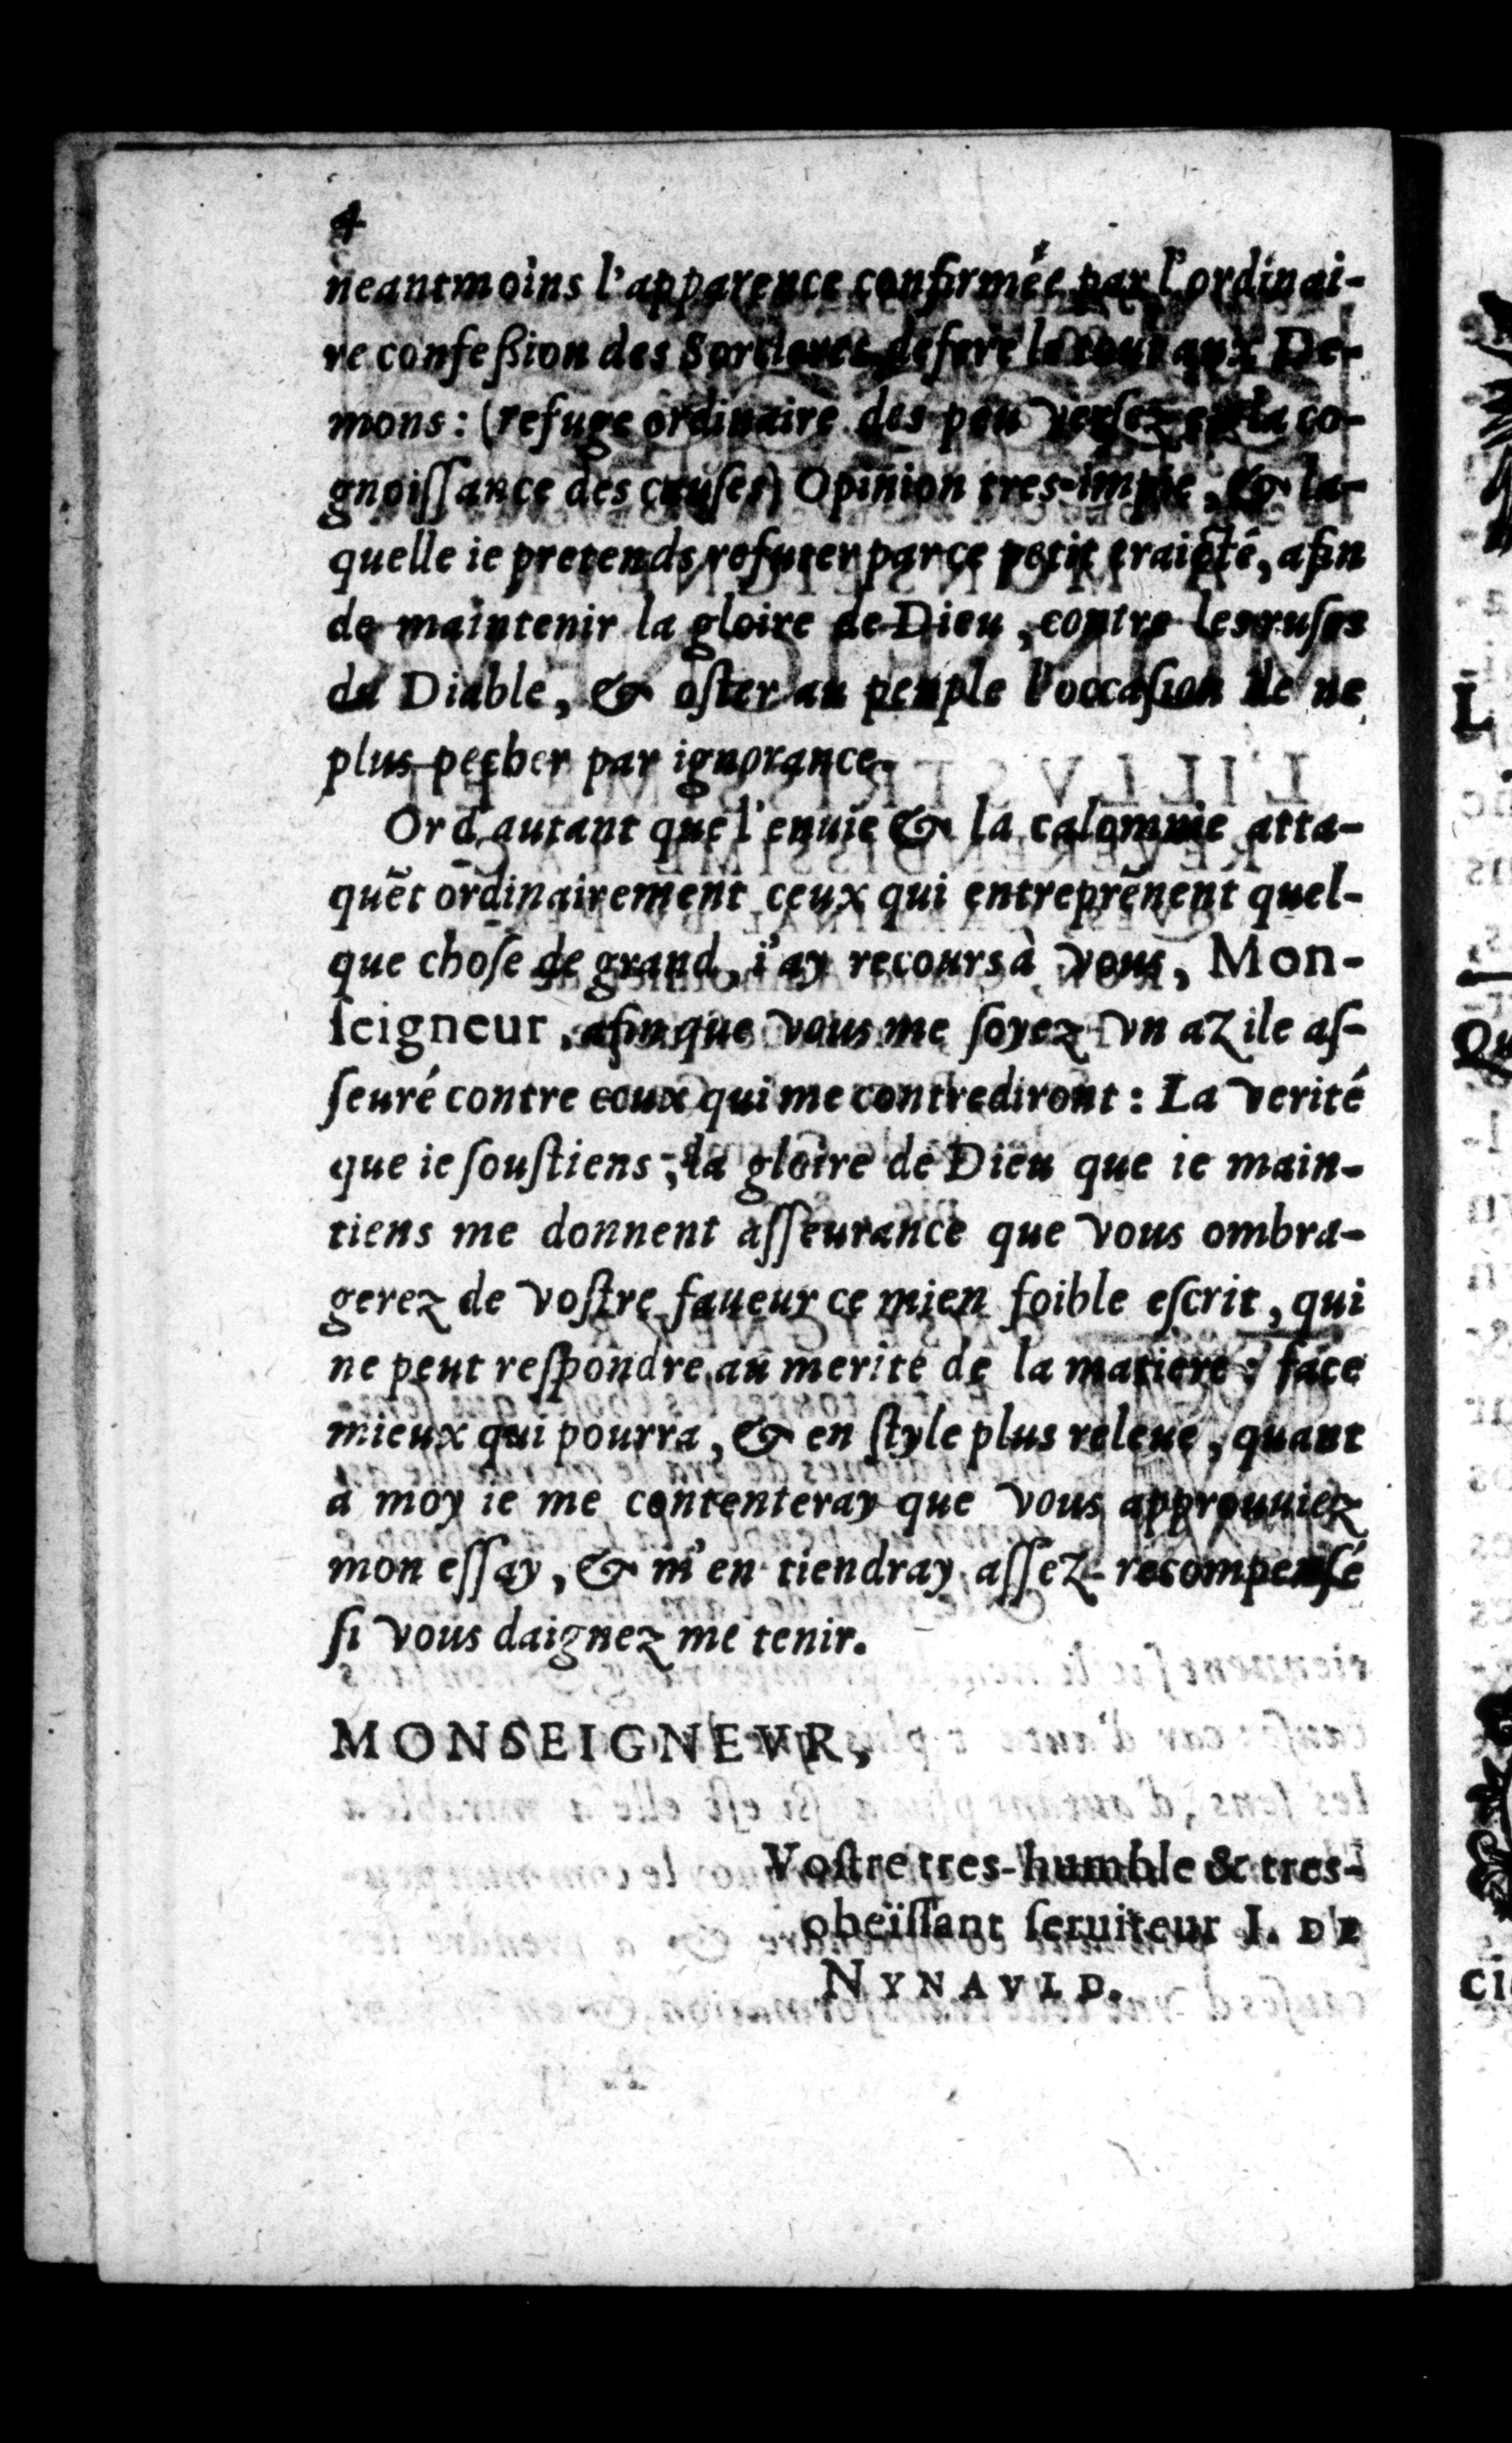 4
neantmoins l'apparence confirmée par l'ordinai-
re confeſsion des Sorcieres, defere le tout aux De-
mons: (refuge ordinaire des peu verſez en la co-
gnoiſſance des cauſes) Opinion tres-impie, & la-
quelle ie pretends refuter par ce petit traicté, afin
de maintenir la gloire de Dieu, contre les ruſes
du Diable, & oſter au peuple l'occaſion de ne
plus pecher par ignorance.
Or d'autant que l'enuie & la calomnie atta-
quẽt ordinairement ceux qui entreprẽnent quel-
que choſe de grand, i'ay recours à vous, Mon-
ſeigneur, afin que vous me ſoyez vn azile aſ-
ſeuré contre ceux qui me contrediront: La verité
que ie ſouſtiens, la gloire de Dieu que ie main-
tiens me donnent aſſeurance que vous ombra-
gerez de voſtre faueur ce mien foible eſcrit, qui
ne peut reſpondre au merite de la matiere: face
mieux qui pourra, & en ſtyle plus releué, quant
à moy ie me contenteray que vous approuuiez
mon eſſay, & m'en tiendray aſſez recompenſé
ſi vous daignez me tenir.
MONSEIGNEVR,
Voſtre tres-humble & tres-
obeïſſant ſeruiteur I. DE
NYNAVLD.